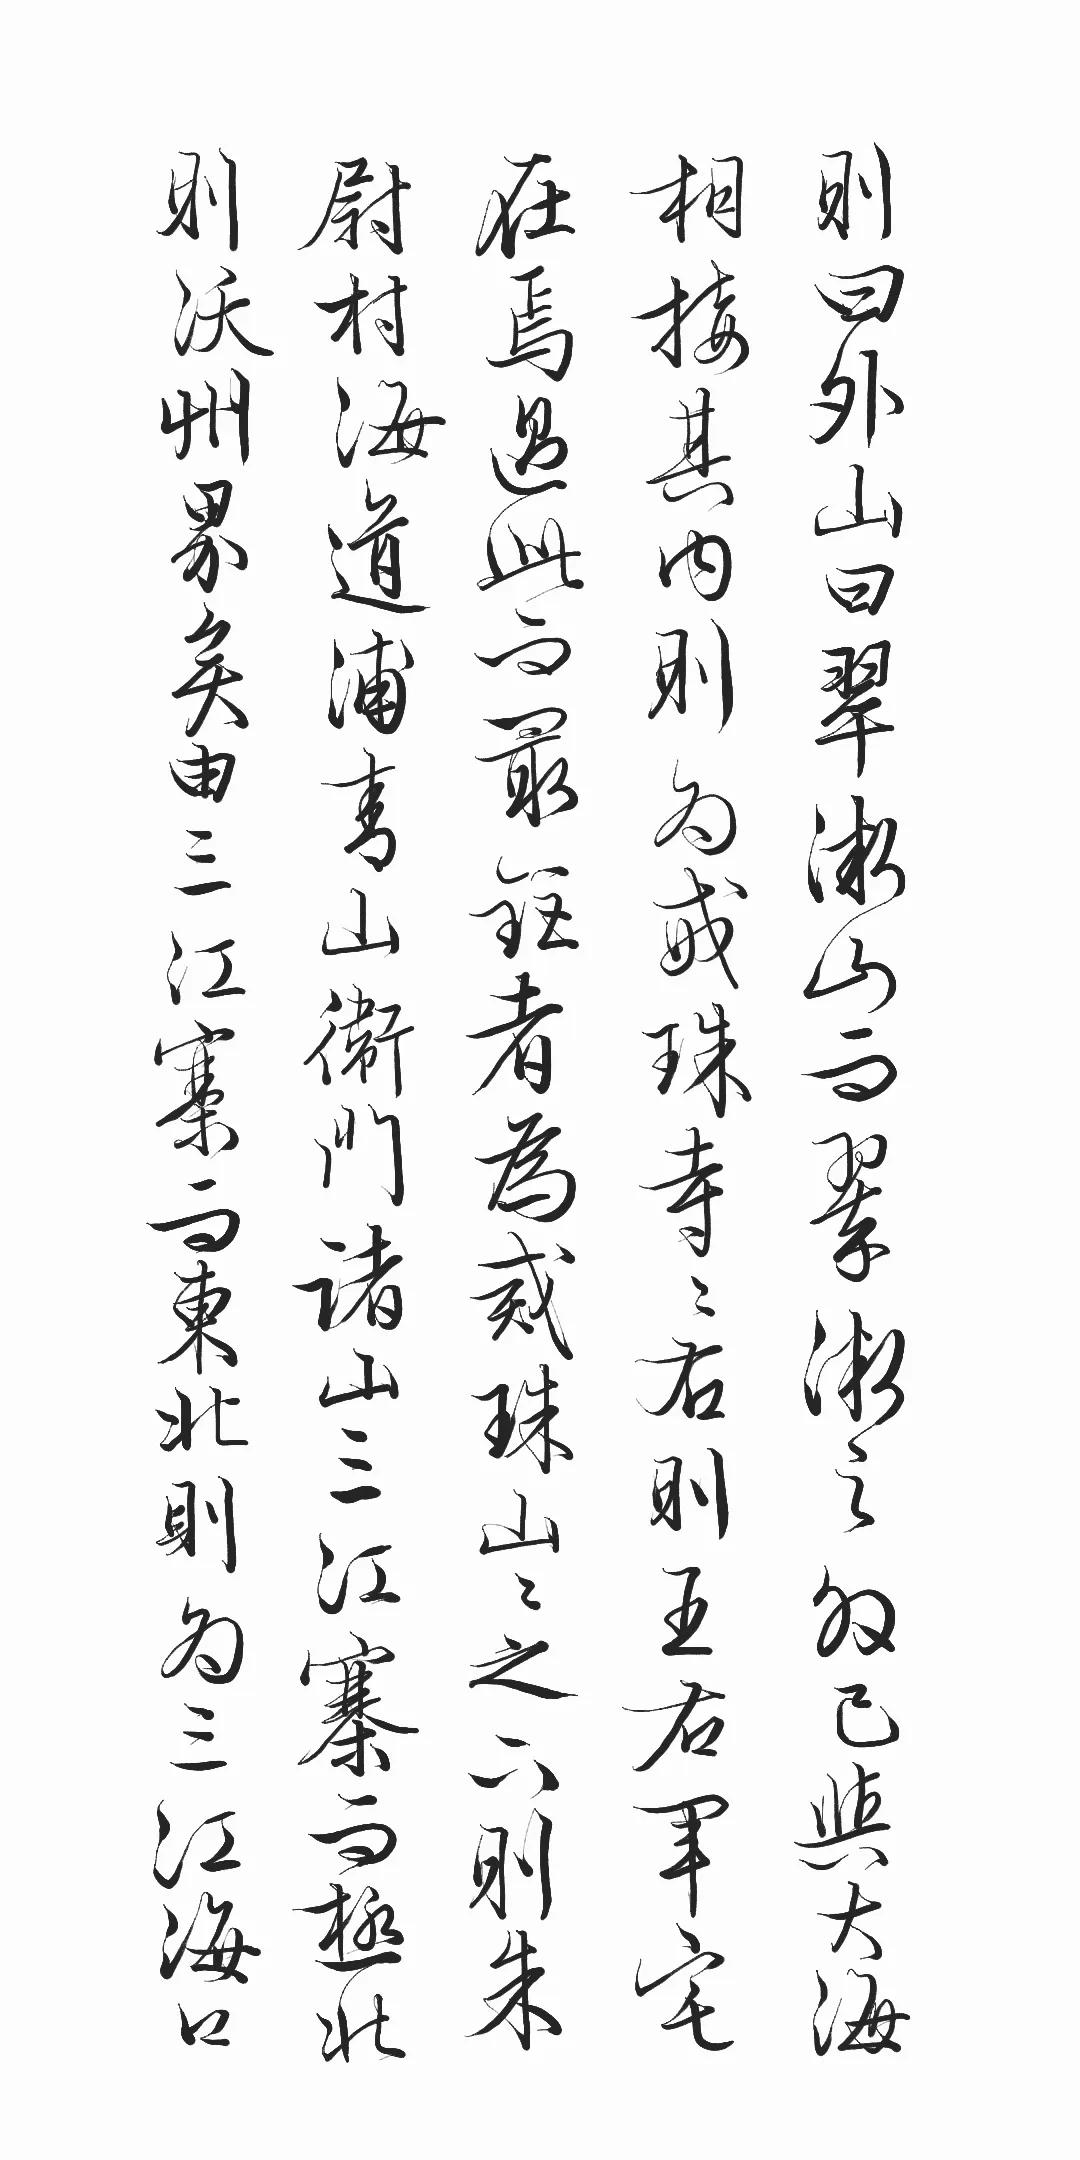 則曰外山曰翠微山而翠微之外已與大海
相接其內則為戒珠寺〻右則王右軍宅
在焉過此而最鉅者為戒珠山〻之下則朱
尉村海道浦青山衛門諸山三江寨而極北
則沃州界矣由三江寨而東北則為三江海口